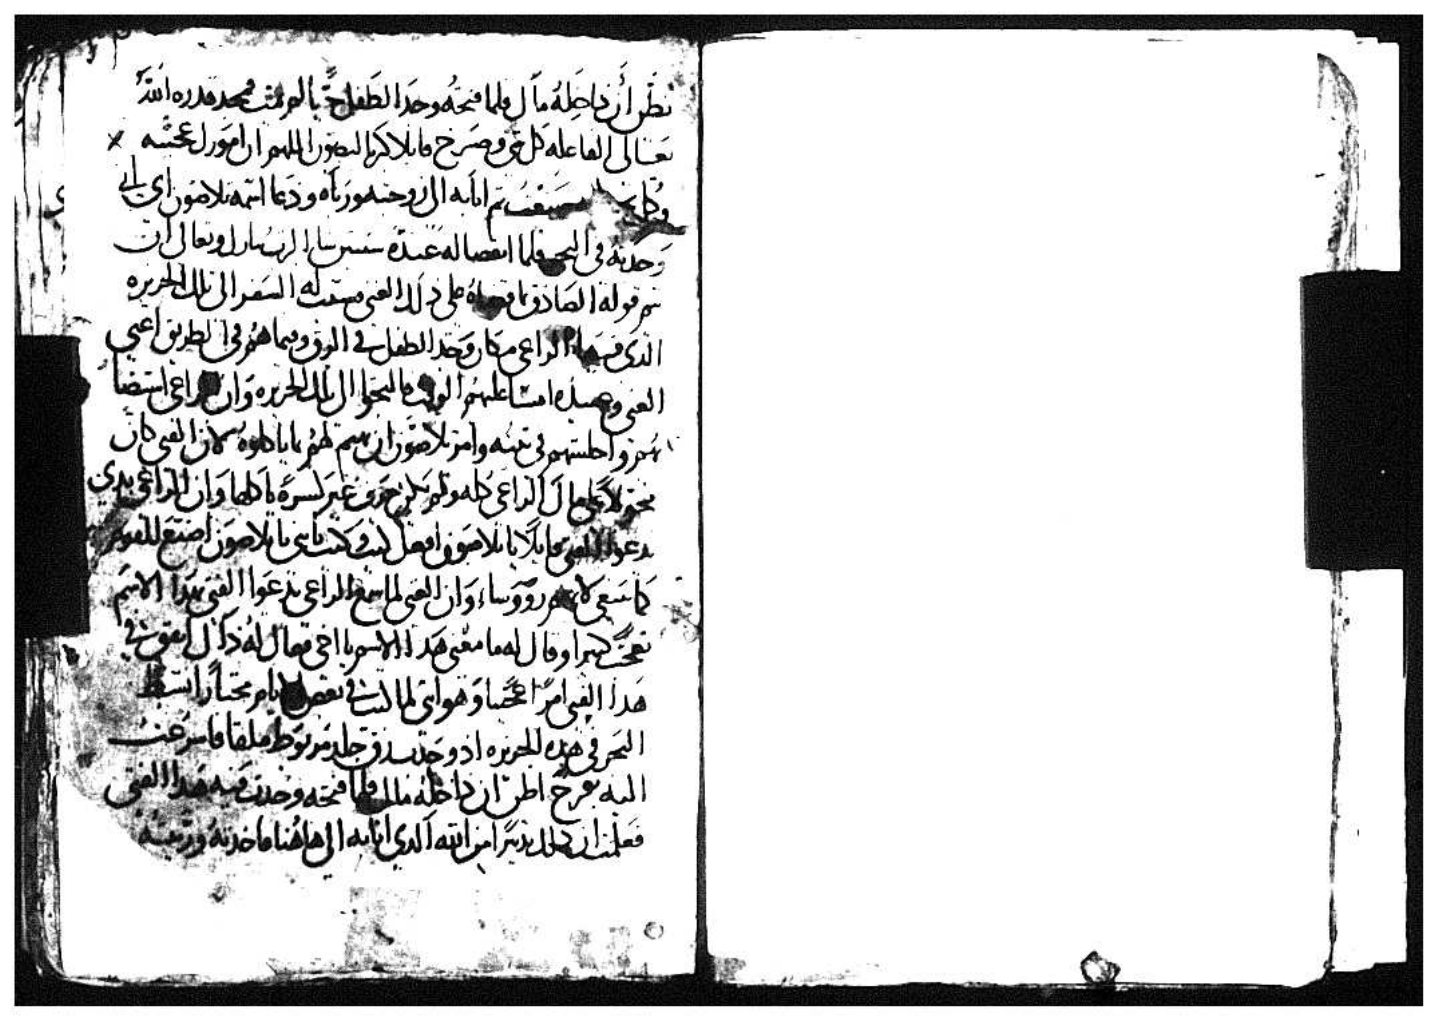 يظن أن داخله مال فلما فتحه وجد الطفل حي بالزق فمجد قدره الله
تعالى الفاعله كل شي وصرخ قايلا كرياليصون اللهم ان امورك عجيبه
وكان ثم اتابه الى زوجته وربّاه ودعا اسمه بلاصون اي اني
وجدته في البحر فلما انقضا له عنده سنين شا الرب تبارك وتعالى ان
يتم قوله الصادق بما قضاه على ذلك الغني وسبب له السفر الى تلك الجزيره
الذي فيها الراعي مكان وجد الطفل في الزق وفيما هم في الطريق اعني
الغني وعبيده امسا عليهم الوقت فالتجوا الى تلك الجزيره وان الراعي استضا
بهم واجلسهم في بيته وامر بلاصون ان يهتم لهم بما ياكلوه لان الغني كان
الراعي كله ولم يكن غير كسرة ياكلها وان الراعي بدي
يدعوا الفتى قايلا يا بلاصون افعل كيت وكيت يا بني يا بلاصون اصنع للقوم
كما ينبغي لانهم رووساء وان الغني لما سمع الراعي يدعوا الفتى بهذا الاسم
تعجب كثيرا وقال له ما معنى هذا الاسم يا اخي فقال له ذاك اتفق لي في
هذا الفتى امرًا عجبًا وهو انني لما كنت في بعض الايام مجتازا شط
البحر في هذه الجزيره اذ وجدت زق جلد مربوط ملقا فاسرعت
اليه بفرح اظن ان داخله مال فلما فتحته وجدت فيه هذا الفتى
فعلمت ان ذلك تدبيرًا من الله الذي اتا به الى هاهنا فاخذته وربيته